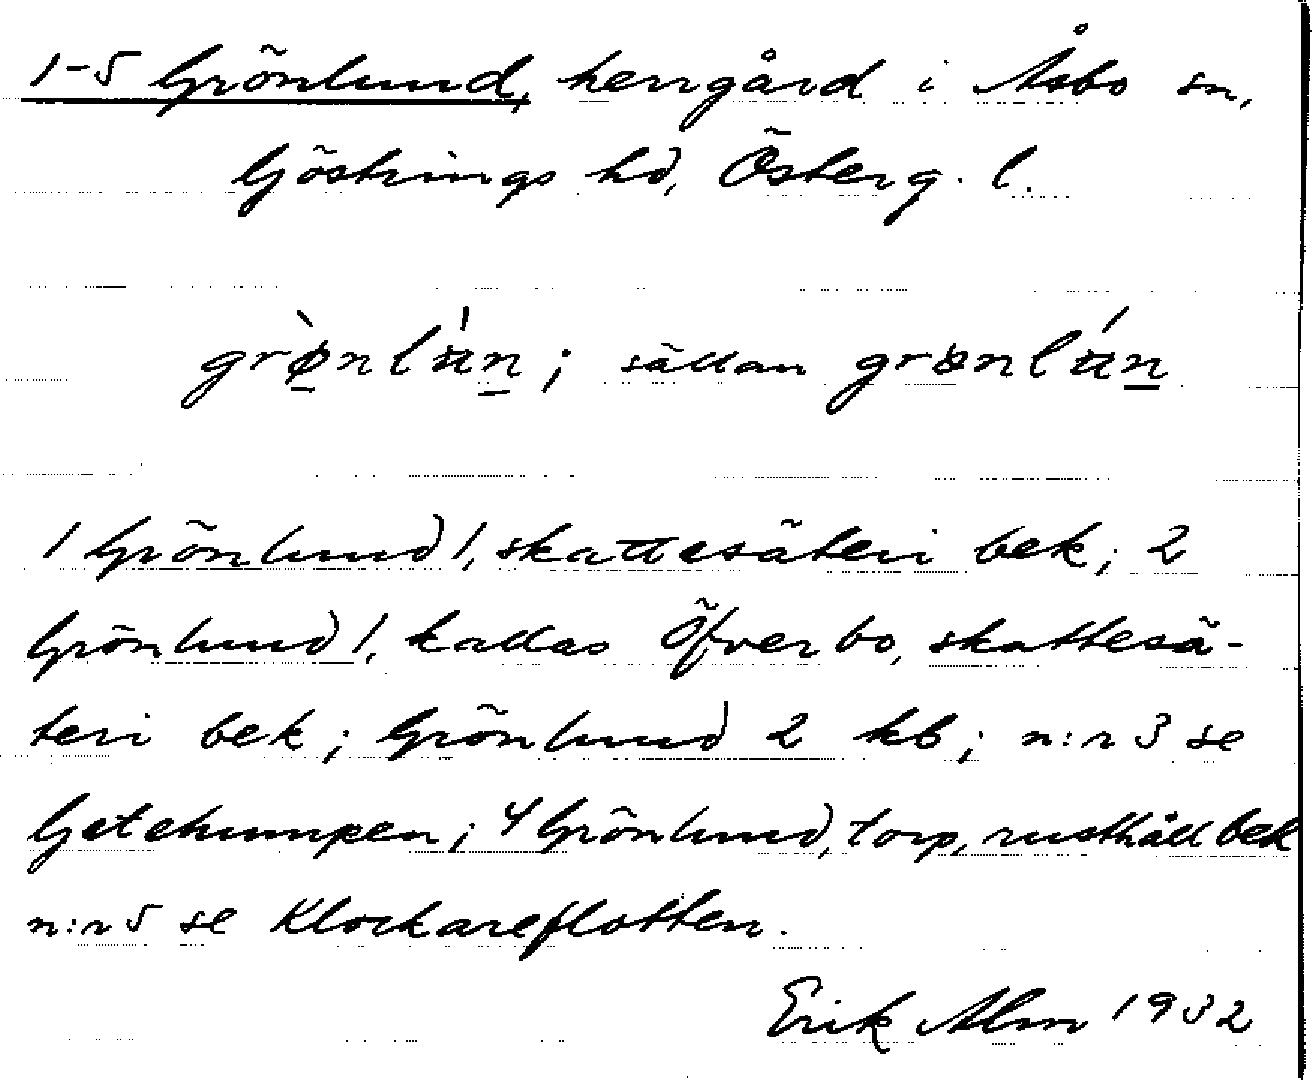 1-5 Grönlund, herrgård i Åsbo sn,
Göstrings hd, Österg. l.
grø̀nlʉ́n; sällan grønlʉ́n
1 Grönlund 1, skattesäteri bek; 2
Grönlund 1, kallas Öfverbo, skattesä-
teri bek; Grönlund 2 kb; n:r 3 se
Getehumpen; 4 Grönlund, torp, rusthåll bek
n:r 5 se Klockareflotten.
Erik Alm 1932